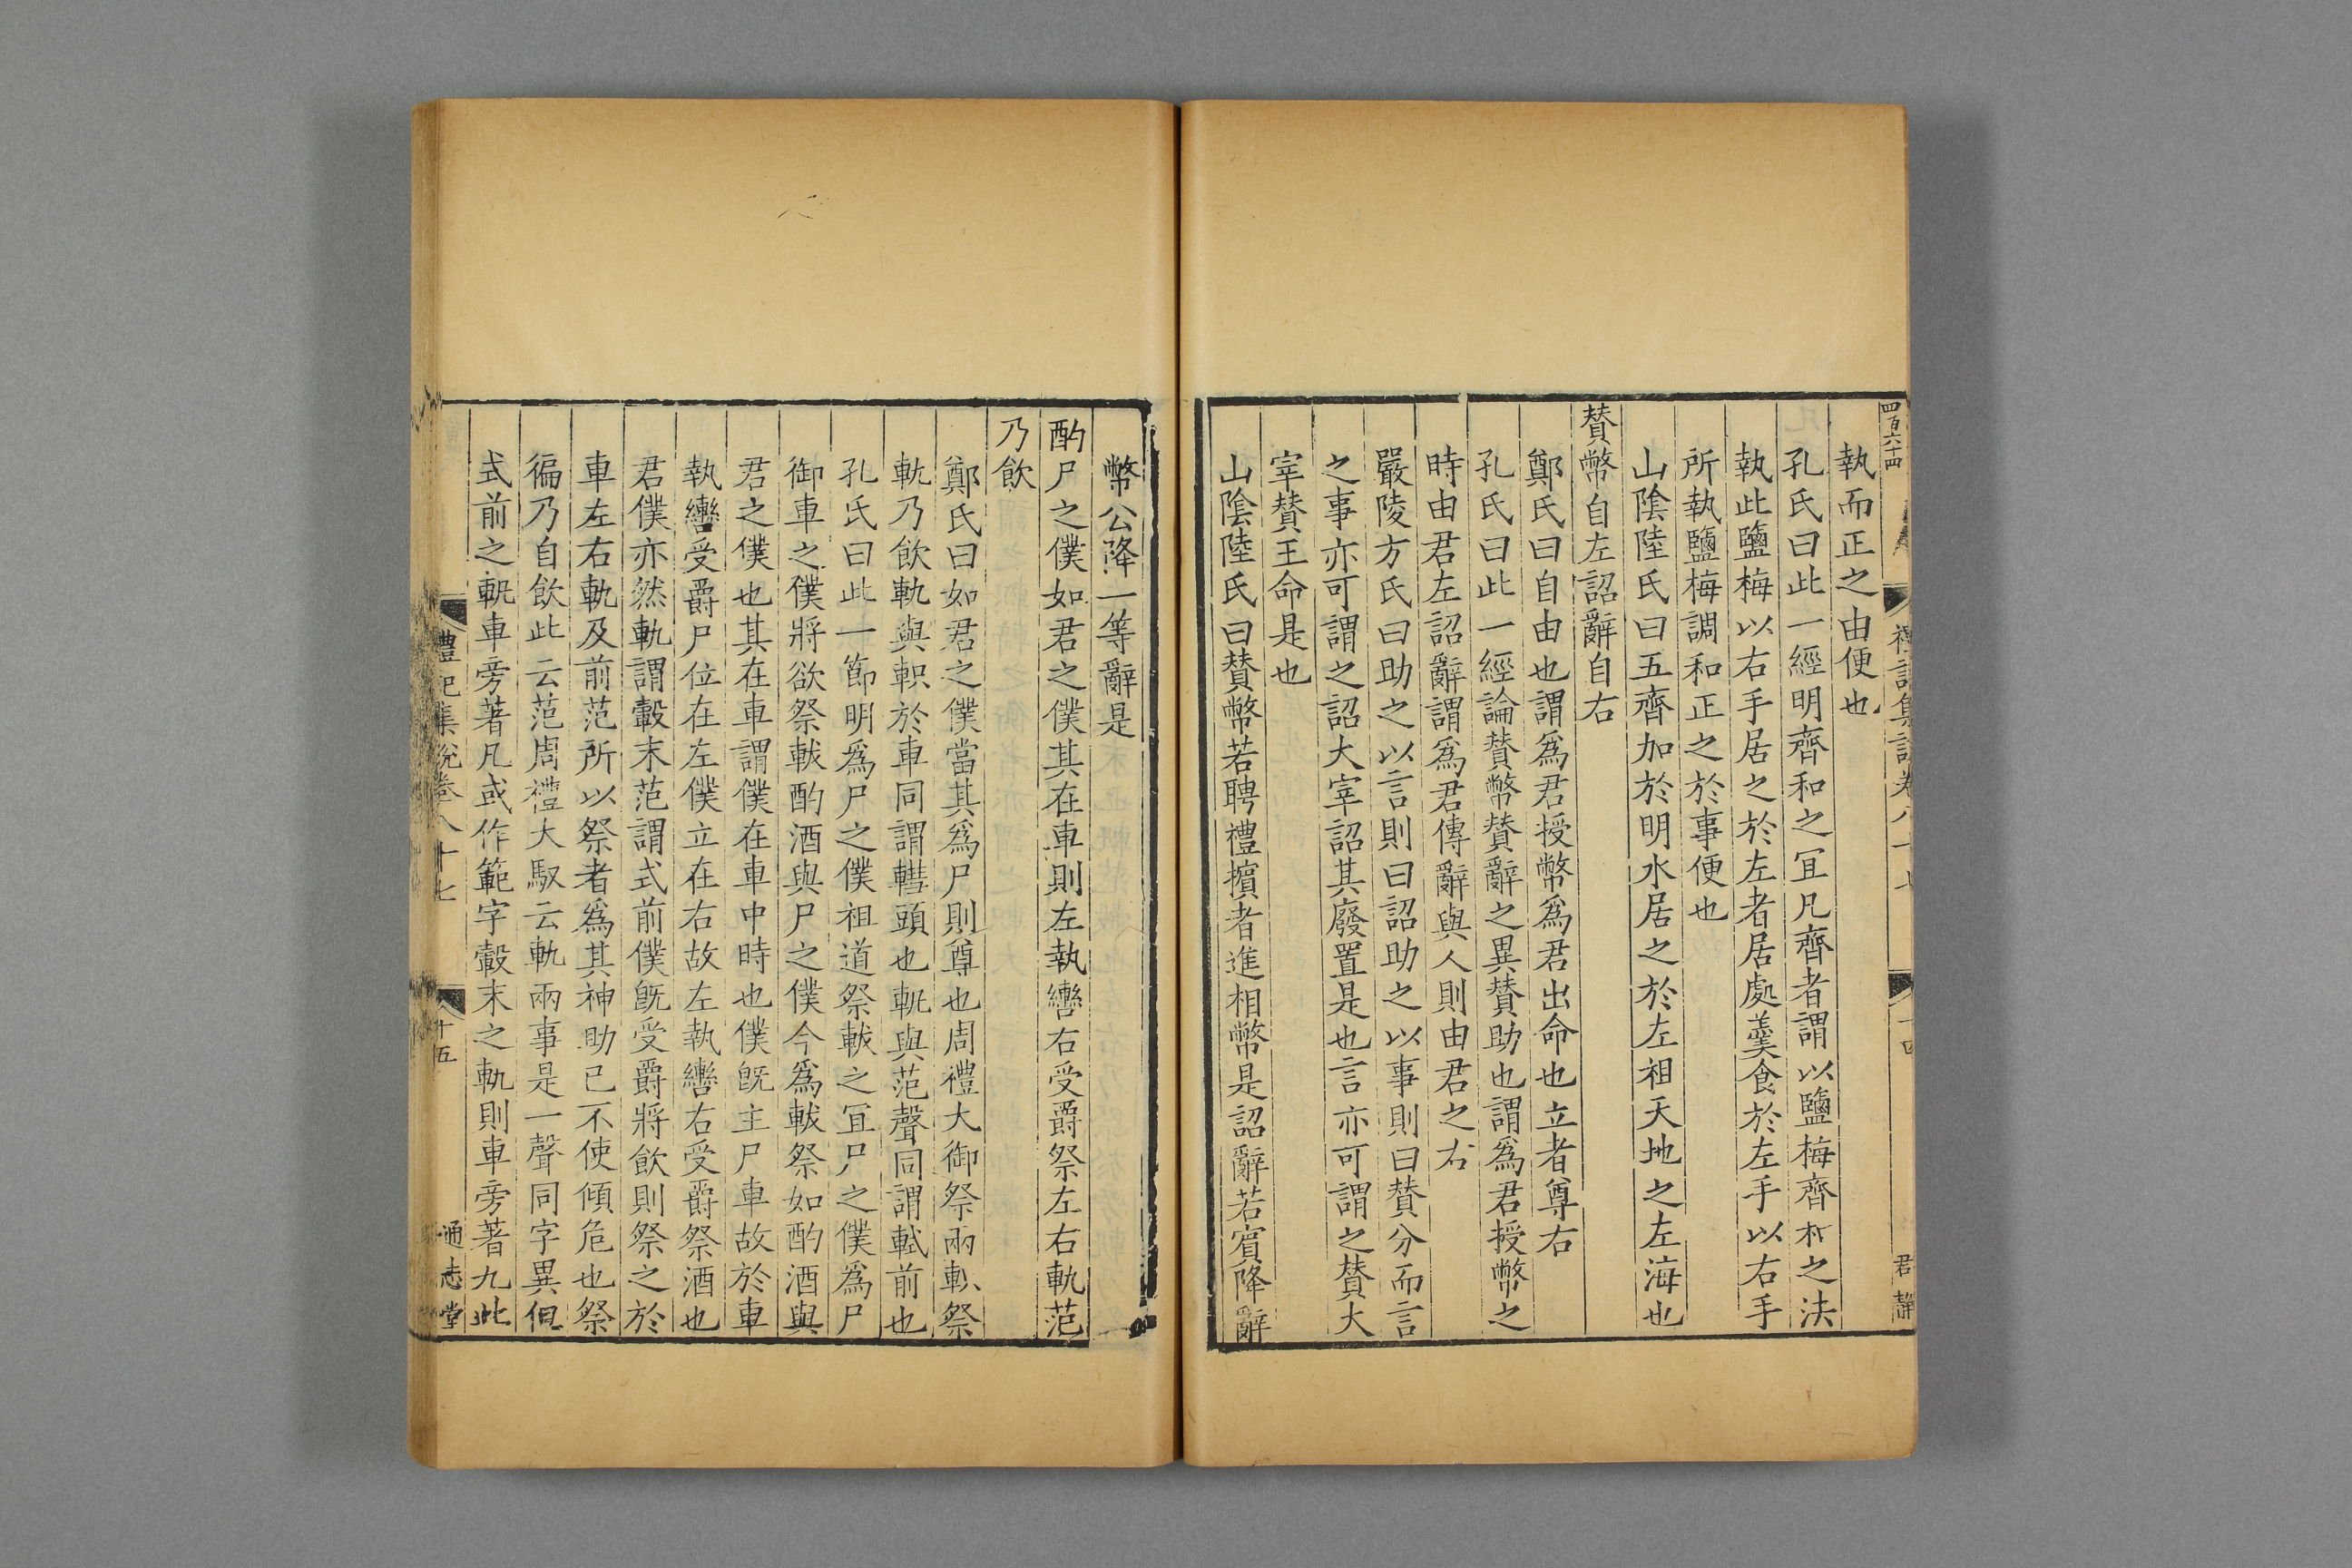 四百六十四
禮記集說卷八十七
十四
君靜
執而正之由便也
孔氏曰此一經明齊和之冝凡齊者謂以鹽梅齊和之法
執此鹽梅以右手居之於左者居處羹食於左手以右手
所執鹽梅調和正之於事便也
山隂陸氏曰五齊加於明水居之於左祖天地之左海也
賛幣自左詔辭自右
鄭氏曰自由也謂爲君授幣爲君出命也立者尊右
孔氏曰此一經論賛幣賛辭之異賛助也謂爲君授幣之
時由君左詔辭謂爲君傳辭與人則由君之右
嚴陵方氏曰助之以言則曰詔助之以事則曰賛分而言
之事亦可謂之詔大宰詔其廢置是也言亦可謂之賛大
宰賛王命是也
山隂陸氏曰賛幣若聘禮擯者進相幣是詔辭若賓降辭
幣公降一等辭是
酌尸之僕如君之僕其在車則左執轡右受爵祭左右軌范
乃飲
鄭氏曰如君之僕當其爲尸則尊也周禮大御祭兩軹祭
軓乃飲軌與軹於車同謂轊頭也軓與范聲同謂軾前也
孔氏曰此一節明爲尸之僕祖道祭軷之冝尸之僕爲尸
御車之僕將欲祭軷酌酒與尸之僕今爲軷祭如酌酒與
君之僕也其在車謂僕在車中時也僕旣主尸車故於車
執轡受爵尸位在左僕立在右故左執轡右受爵祭酒也
君僕亦然軌謂轂末范謂式前僕旣受爵將飲則祭之於
車左右軌及前范所以祭者爲其神助已不使傾危也祭
徧乃自飲此云范周禮大馭云軓兩事是一聲同字異但
式前之軓車旁著凡或作範字轂末之軌則車旁著九此
禮記集說卷八十七
十五
通志堂